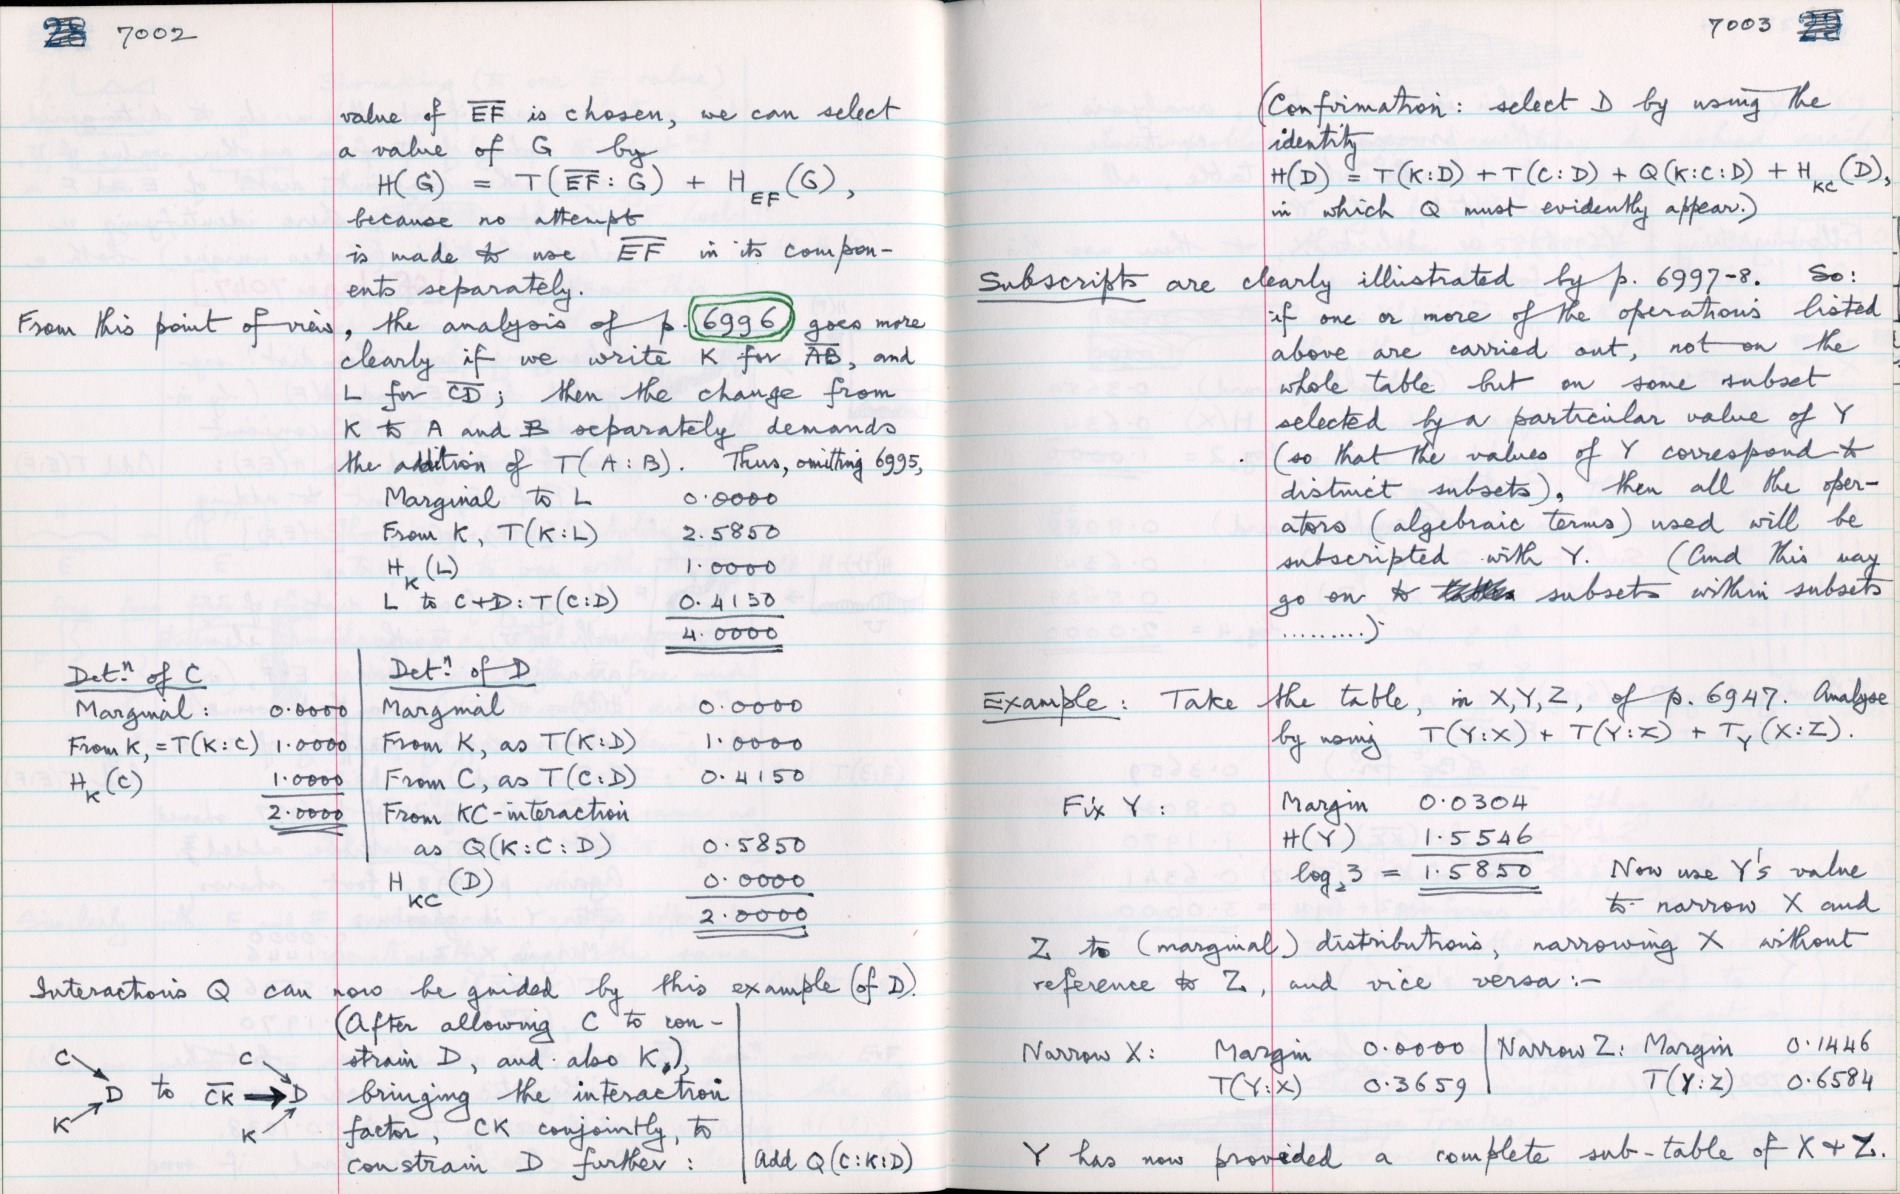 28 7002
value of E͞F is chosen, we can select
a value of G by
H(G) = T(E͞F : G) + H_EF(G),
because no attempt
is made to use E͞F in its compon-
ents separately.
From this point of view, the analysis of p. 6996 goes more
clearly if we write K for A͞B, and
L for C͞D; then the change from
K to A and B separately demands
the addition of T(A:B). Thus, omitting 6995,
Marginal to L 0.0000
From K, T(K:L) 2.5850
H_K(L) 1.0000
L to C+D: T(C:D) 0.4150
4.0000
Detⁿ of C
Marginal: 0.0000
From K, =T(K:C) 1.0000
H_K(C) 1.0000
2.0000
Detⁿ of D
Marginal 0.0000
From K, as T(K:D) 1.0000
From C, as T(C:D) 0.4150
From KC-interaction
as Q(K:C:D) 0.5850
H_KC(D) 0.0000
2.0000
Interactions Q can now be guided by this example (of D).
(After allowing C to con-
strain D, and also K,),
bringing the interaction
factor, CK conjointly, to
constrain D further: Add Q(C:K:D)
C K D to C͞K C K D
7003 29
(Confirmation: select D by using the
identity
H(D) = T(K:D) + T(C:D) + Q(K:C:D) + H_KC(D),
in which Q must evidently appear.)
Subscripts are clearly illustrated by p. 6997-8. So:
if one or more of the operations listed
above are carried out, not on the
whole table but on some subset
selected by a particular value of Y
(so that the values of Y correspond to
distinct subsets), then all the oper-
ators (algebraic terms) used will be
subscripted with Y. (And this way
go on to subsets within subsets
.........)
Example: Take the table, in X,Y,Z, of p. 6947. Analyse
by using T(Y:X) + T(Y:Z) + T_Y(X:Z).
Fix Y: Margin 0.0304
H(Y) 1.5546
log₂3 = 1.5850 Now use Y's value
to narrow X and
Z to (marginal) distributions, narrowing X without
reference to Z, and vice versa :-
Narrow X: Margin 0.0000
T(Y:X) 0.3659
Narrow Z: Margin 0.1446
T(Y:Z) 0.6584
Y has now provided a complete sub-table of X + Z.